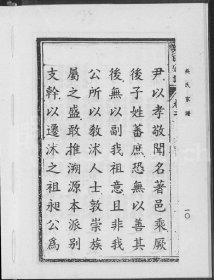 尹以孝敬聞名著邑乘厥
後子姓蕃庶恐無以善其
後無以副我祖意且非我
公所以敎沭人士敦崇族
屬之盛敢推溯源本派别
支幹以遷沭之祖昶公爲
吳氏家譜
一〇